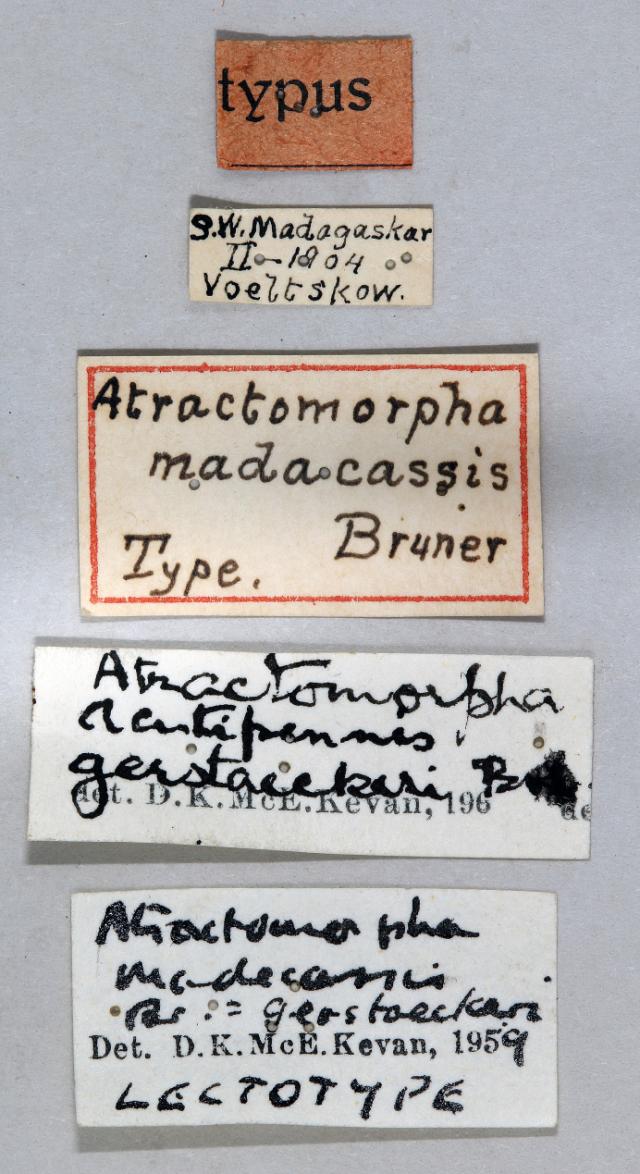 typus
S.W. Madagaskar
II - 1904
Voeltskow.
Atractomorpha
madacassis
Bruner
Type.
Atractomorpha
acutipennis
gerstaeckeri
det. D.K.McE.Kevan, 196
de
Atractomorpha
madecassis
Br. = gerstaeckeri
Det. D.K.McE.Kevan, 1959
LECTOTYPE